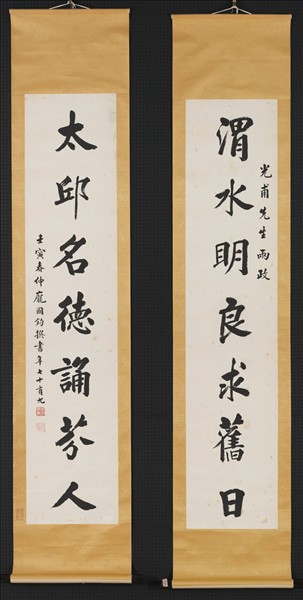 渭水明良求舊日
光甫先生兩政
太邱名德誦芬人
壬寅春仲龐國鈞撰書年七十有九